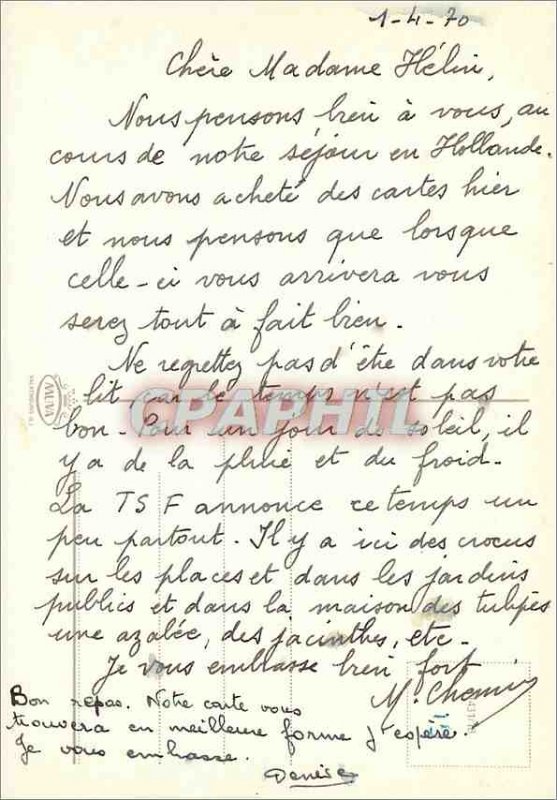 1-4-70
Chère Madame Hélin,
Nous pensons bien à vous, au
cours de notre séjour en Hollande.
Nous avons acheté des cartes hier
et nous pensons que lorsque
celle-ci vous arrivera vous
serez tout à fait bien.
Ne regrettez pas d'être dans votre
lit car le temps n'est pas
bon - Pour un jour de soleil, il
y a de la pluie et du froid.
La TSF annonce ce temps un
peu partout. Il y a ici des crocus
sur les places et dans les jardins
publics et dans la maison des tulipes
une azalée, des jacinthes, etc -
Je vous embrasse bien fort
M. Chemin
Bon repas. Notre carte vous
trouvera en meilleure forme j'espère.
Je vous embrasse.
Denise
CPAPHIL
MUVA